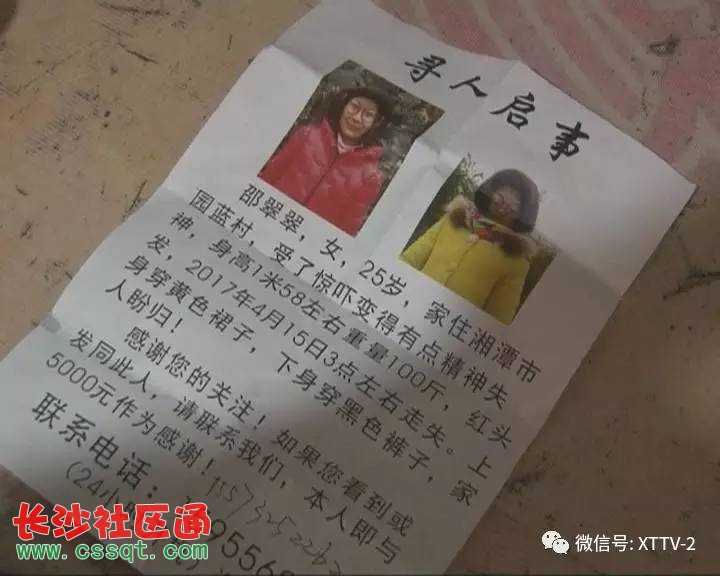 寻人启事
邵翠翠，女，25岁，家住湘潭市
园蓝村，受了惊吓变得有点精神失
神，身高1米58左右重量100斤，红头
发，2017年4月15日3点左右走失。上
身穿黄色裙子，下身穿黑色裤子，家
人盼归！
感谢您的关注！如果您看到或
发同此人，请联系我们，本人即与
5000元作为感谢！
联系电话：
(24小
长沙社区通
www.cssqt.com
微信号: XTTV-2